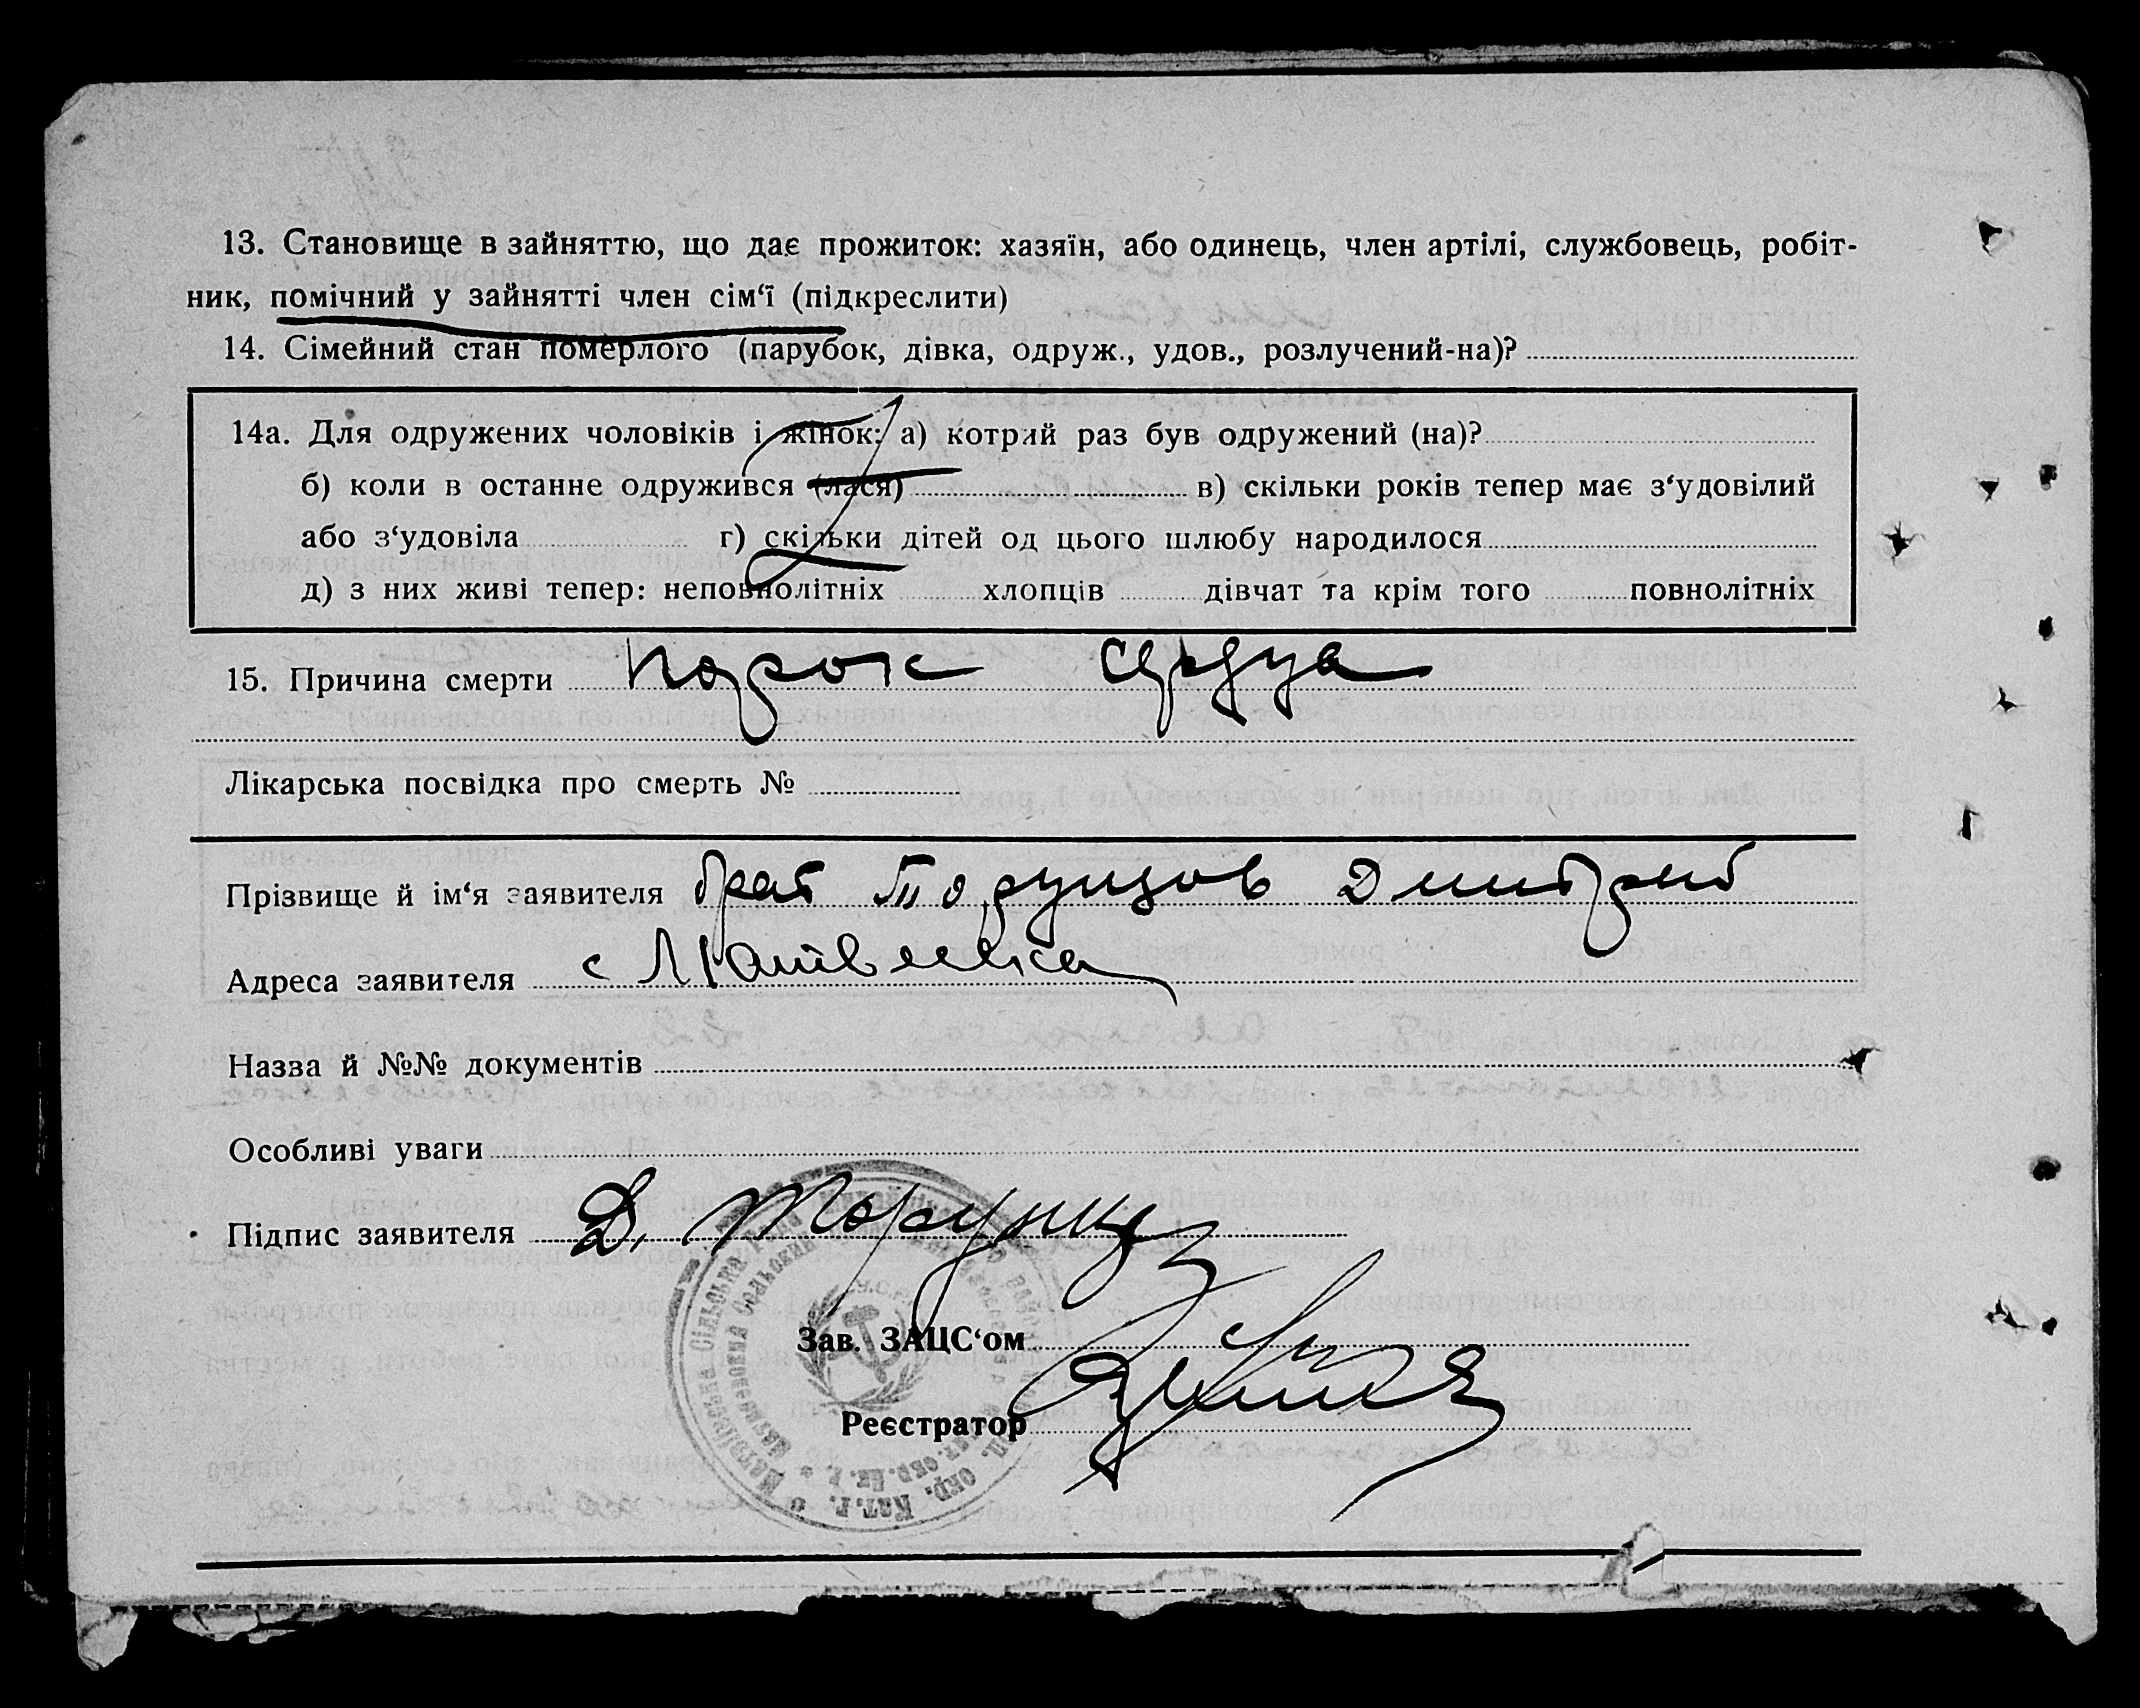 13. Становище в зайняттю, що дає прожиток: хазяїн, або одинець, член артілі, службовець, робіт-
ник, помічний у зайнятті член сім‘ї (підкреслити)
14. Сімейний стан померлого (парубок, дівка, одруж., удов., розлучений-на)?
14а. Для одружених чоловіків і жінок: а) котрий раз був одружений (на)?
б) коли в останне одружився (лася) в) скільки років тепер має з‘удовілий
або з‘удовіла г) скільки дітей од цього шлюбу народилося
д) з них живі тепер: неповнолітніх хлопців дівчат та крім того повнолітніх
15. Причина смерти порок сердца
Лікарська посвідка про смерть №
Прізвище й ім‘я заявителя брат Торунцов Дмитрий
Адреса заявителя с
Назва й №№ документів
Особливі уваги
Підпис заявителя Д. Торунцо
Зав. ЗАЦС‘ом
Реєстратор